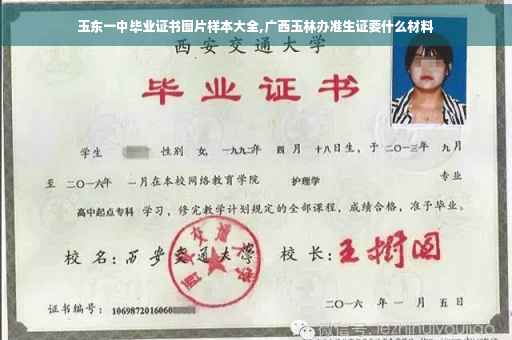 玉东一中毕业证书图片样本大全,广西玉林办准生证要什么材料
西安交通大学
毕业证书
学生 性别 女, 一九九二年 四 月 十八日生, 于 二〇一三年 九 月
至 二〇一六年 一月在本校网络教育学院 护理学 专业
高中起点专科 学习, 修完教学计划规定的全部课程, 成绩合格, 准予毕业。
校 名: 西安交通大学 校 长: 王树国
西安交通大学
证书编号: 1069872016060
二〇一六 年 一 月 五 日
微信号: jezhihuiyoujiao